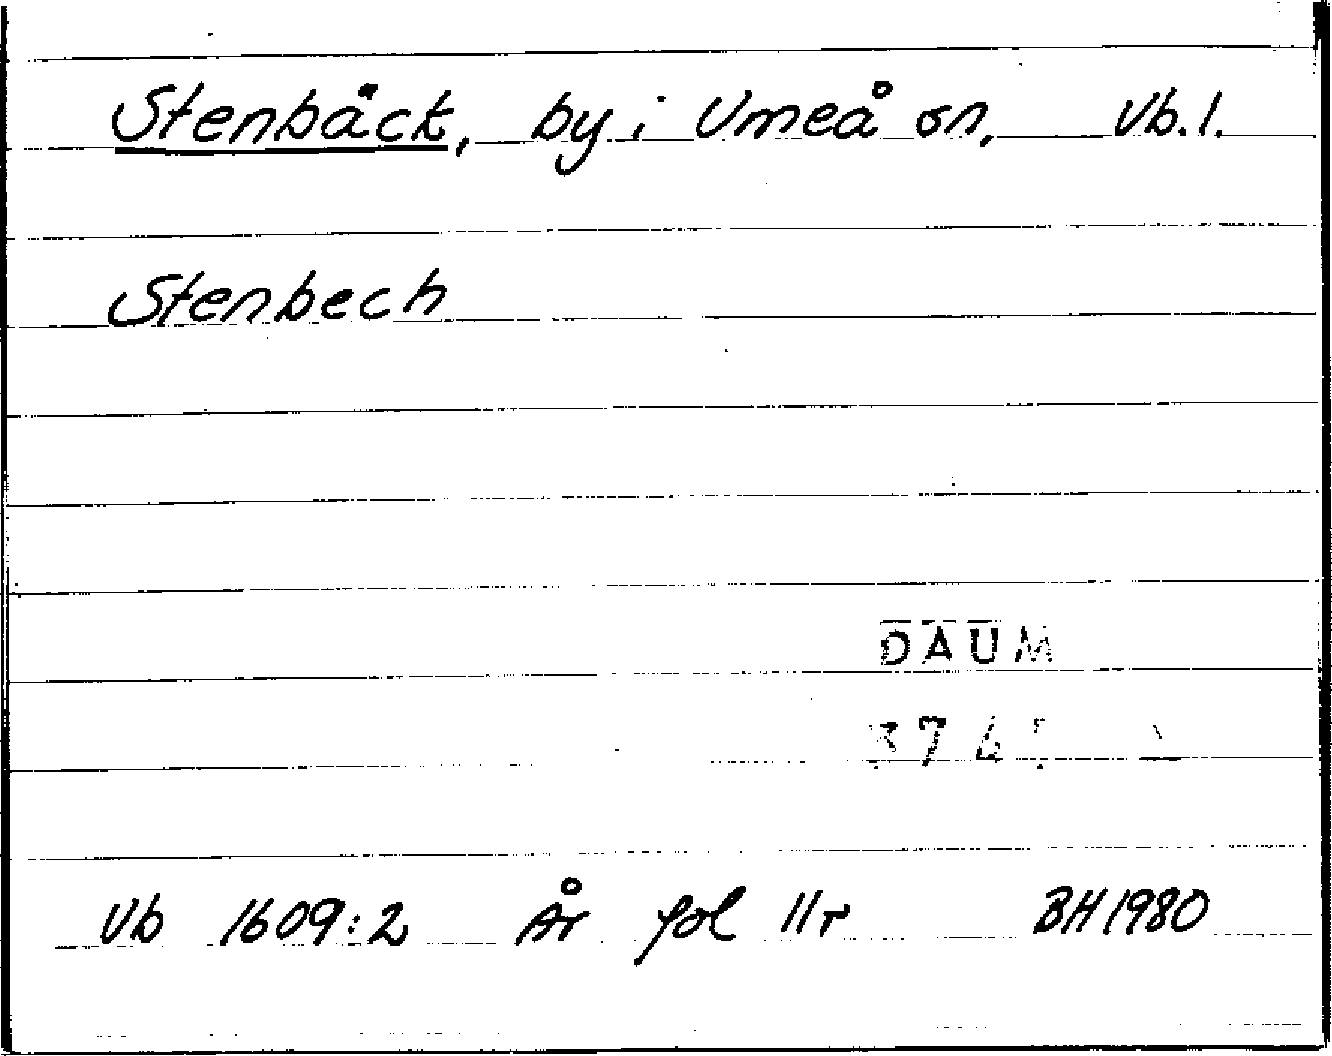 Stenbäck, by i Umeå sn, Vb.l.
Stenbech
DAUM
376
Vb 1609:2 År fol 11r BH 1980